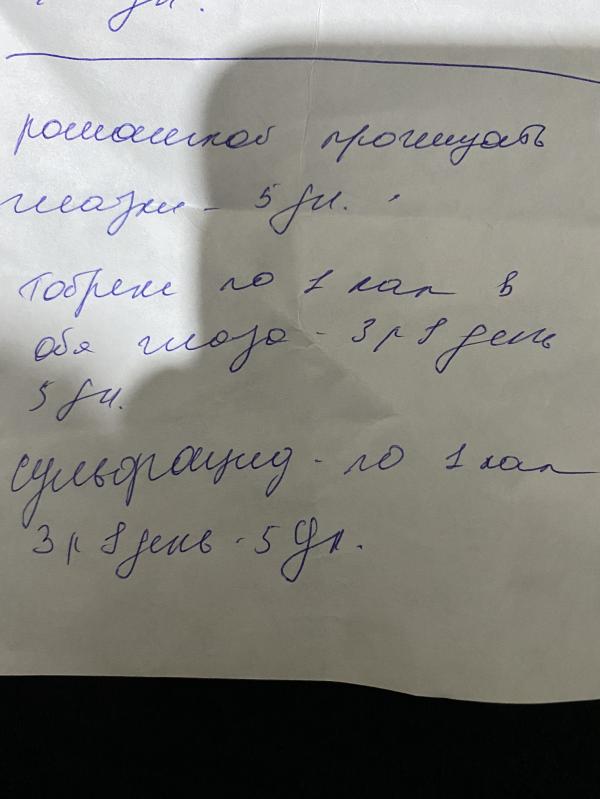 дн.
ромашкой прочищать
глазки - 5 дн.
Тобрекс по 1 кап в
оба глаза - 3 р в день
5 дн.
Сульфацид - по 1 кап
3 р в день - 5 дн.